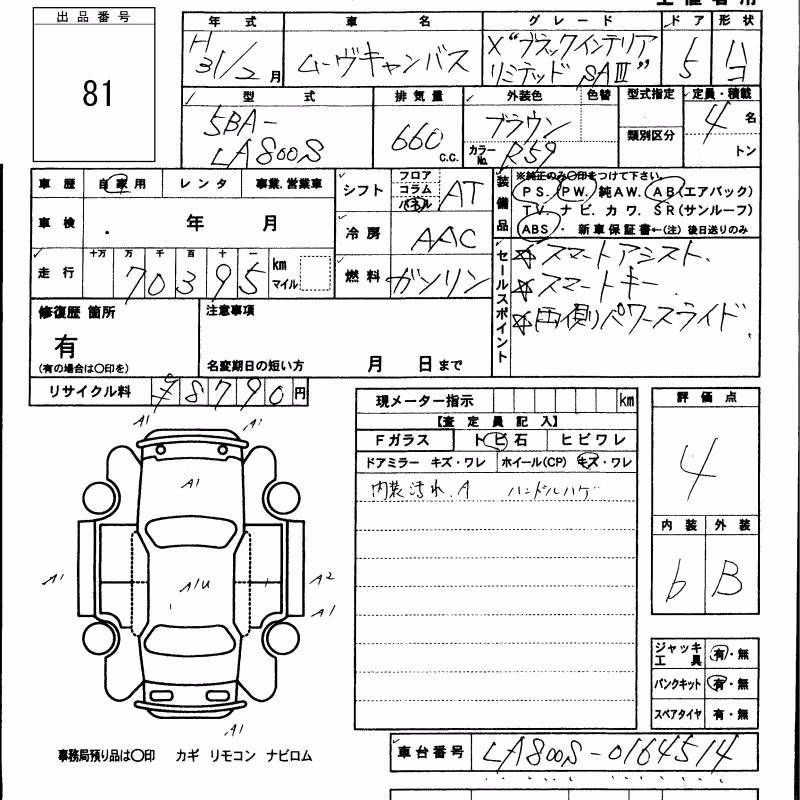 出品番号
81
年式 車名 グレード ドア 形状
H31/2月 ムーヴキャンバス X"ブラックインテリア
リミテッド SAⅢ" 5 ハコ
型式 排気量 外装色 色替 型式指定 定員・積載
5BA-
LA800S 660 C.C. ブラウン 類別区分 4名
カラーNo. R59 トン
車歴 自家用 レンタ 事業.営業車
シフト フロア コラム パネル AT
車検 . 年 月
冷房 AAC
走行 十万 万 千 百 十 一
70395 km マイル
燃料 ガソリン
装備品 ※純正のみ○印をつけて下さい。
PS. PW. 純AW. AB(エアバック)
TV. ナビ. カワ. SR(サンルーフ)
ABS . 新車保証書←(注) 後日送りのみ
セールスポイント
☆スマートアシスト.
☆スマートキー.
☆両側パワースライド
修復歴 箇所
有
(有の場合は○印を)
注意事項
名変期日の短い方 月 日まで
リサイクル料 ¥8790円
現メーター指示 km
【査定員記入】
Fガラス トビ石 ヒビワレ
ドアミラー キズ・ワレ ホイール(CP) キズ・ワレ
内装汚れ.A ハンドルハゲ
評価点
4
内装 外装
b B
A1 A1
A1
A1 A1U A2
A1
A1
ジャッキ工具 有・無
パンクキット 有・無
スペアタイヤ 有・無
事務局預り品は○印 カギ リモコン ナビロム
車台番号 LA800S-0164514